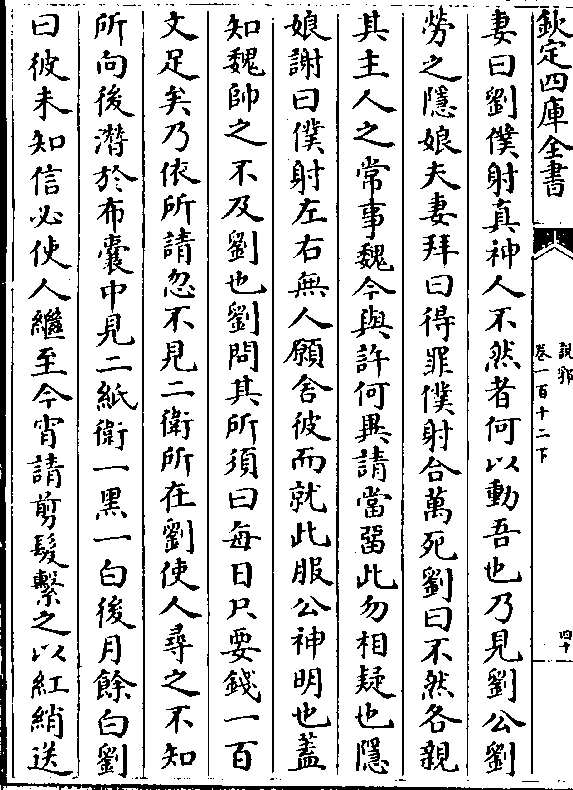 欽定四庫全書
說郛
卷一百十二下
四十
妻曰劉僕射真神人不然者何以動吾也乃見劉公劉
勞之隱娘夫妻拜曰得罪僕射合萬死劉曰不然各親
其主人之常事魏今與許何異請當留此勿相疑也隱
娘謝曰僕射左右無人願舍彼而就此服公神明也蓋
知魏帥之不及劉也劉問其所須曰每日只要錢一百
文足矣乃依所請忽不見二衛所在劉使人尋之不知
所向後潛於布囊中見二紙衛一黑一白後月餘白劉
曰彼未知信必使人繼至今宵請剪髮繫之以紅綃送